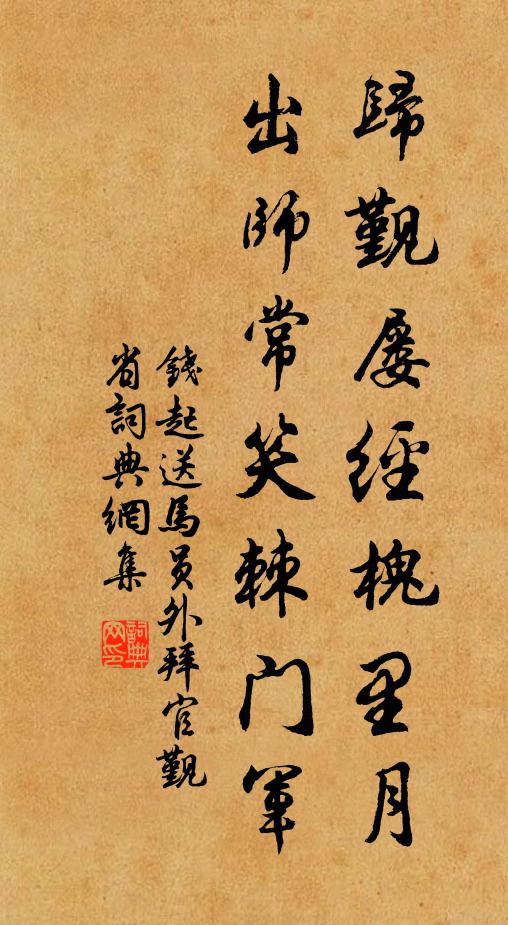 歸覲屢經槐里月
出師常笑棘門軍
錢起送馬員外拜官覲
省詞典網集
詞典
网印